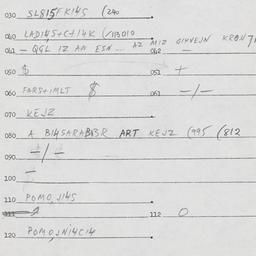 030 SL815FKI4S (240
040 LADI4S+C+I4K (/113010
041 - QGL IZ AM ESN- AZ MIZ 042 - OIHVEJN KRON
050 $ 051 +
060 FORS+IMLT $ 061 -/-
070 KEJZ
080 A BI4SARABI3R ART KEJZ (995 (812
090 -/-
100 -
110 POMO,JI4S
111 112 O
120 POMO,NI4CI4